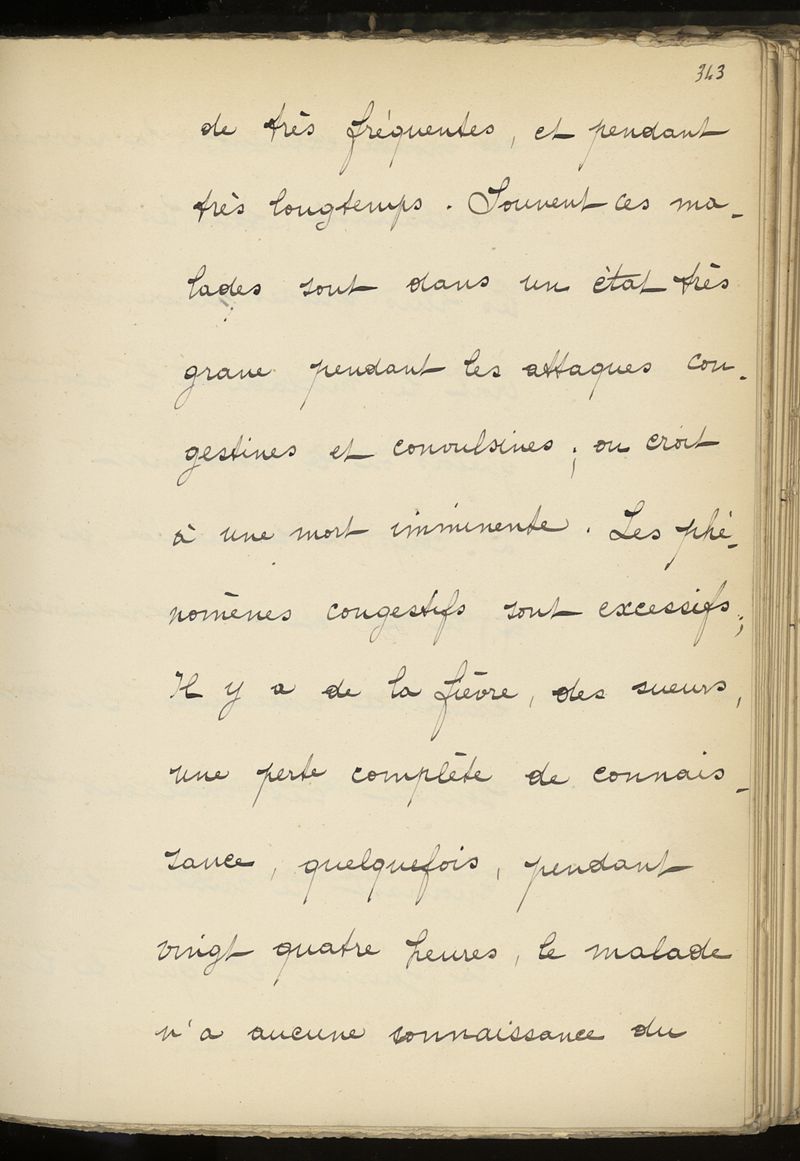 343
de très fréquentes, et pendant
très longtemps. Souvent ces ma-
lades sont dans un état très
grave pendant les attaques con-
gestives et convulsives ; on croit
à une mort imminente. Les phé-
nomènes congestifs sont excessifs ;
Il y a de la fièvre, des sueurs,
une perte complète de connais-
sance, quelquefois, pendant
vingt quatre heures, le malade
n'a aucune connaissance du